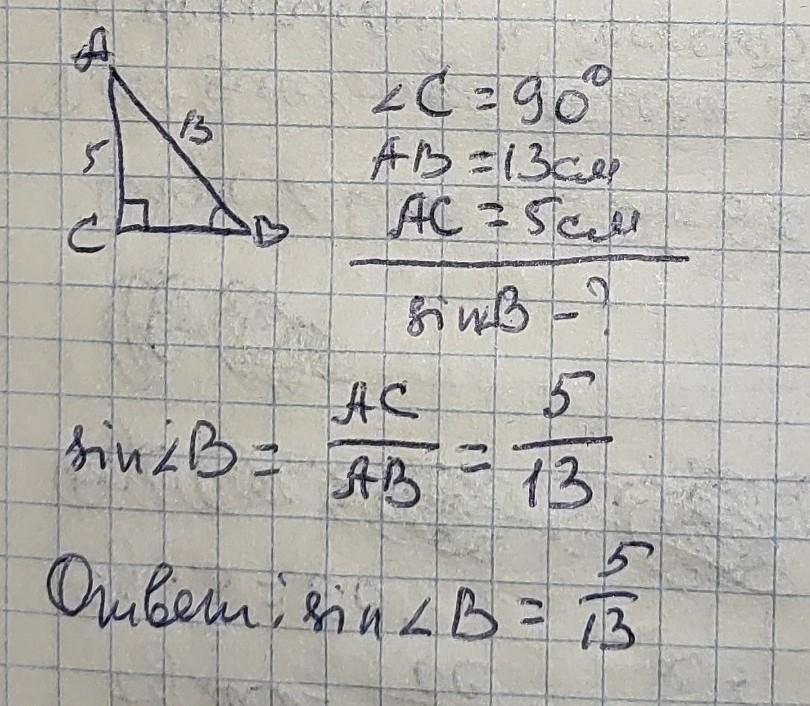 A
13
5
C
B
∠C = 90°
AB = 13 см
AC = 5 см
sin∠B - ?
sin∠B = AC/AB = 5/13
Ответ: sin∠B = 5/13